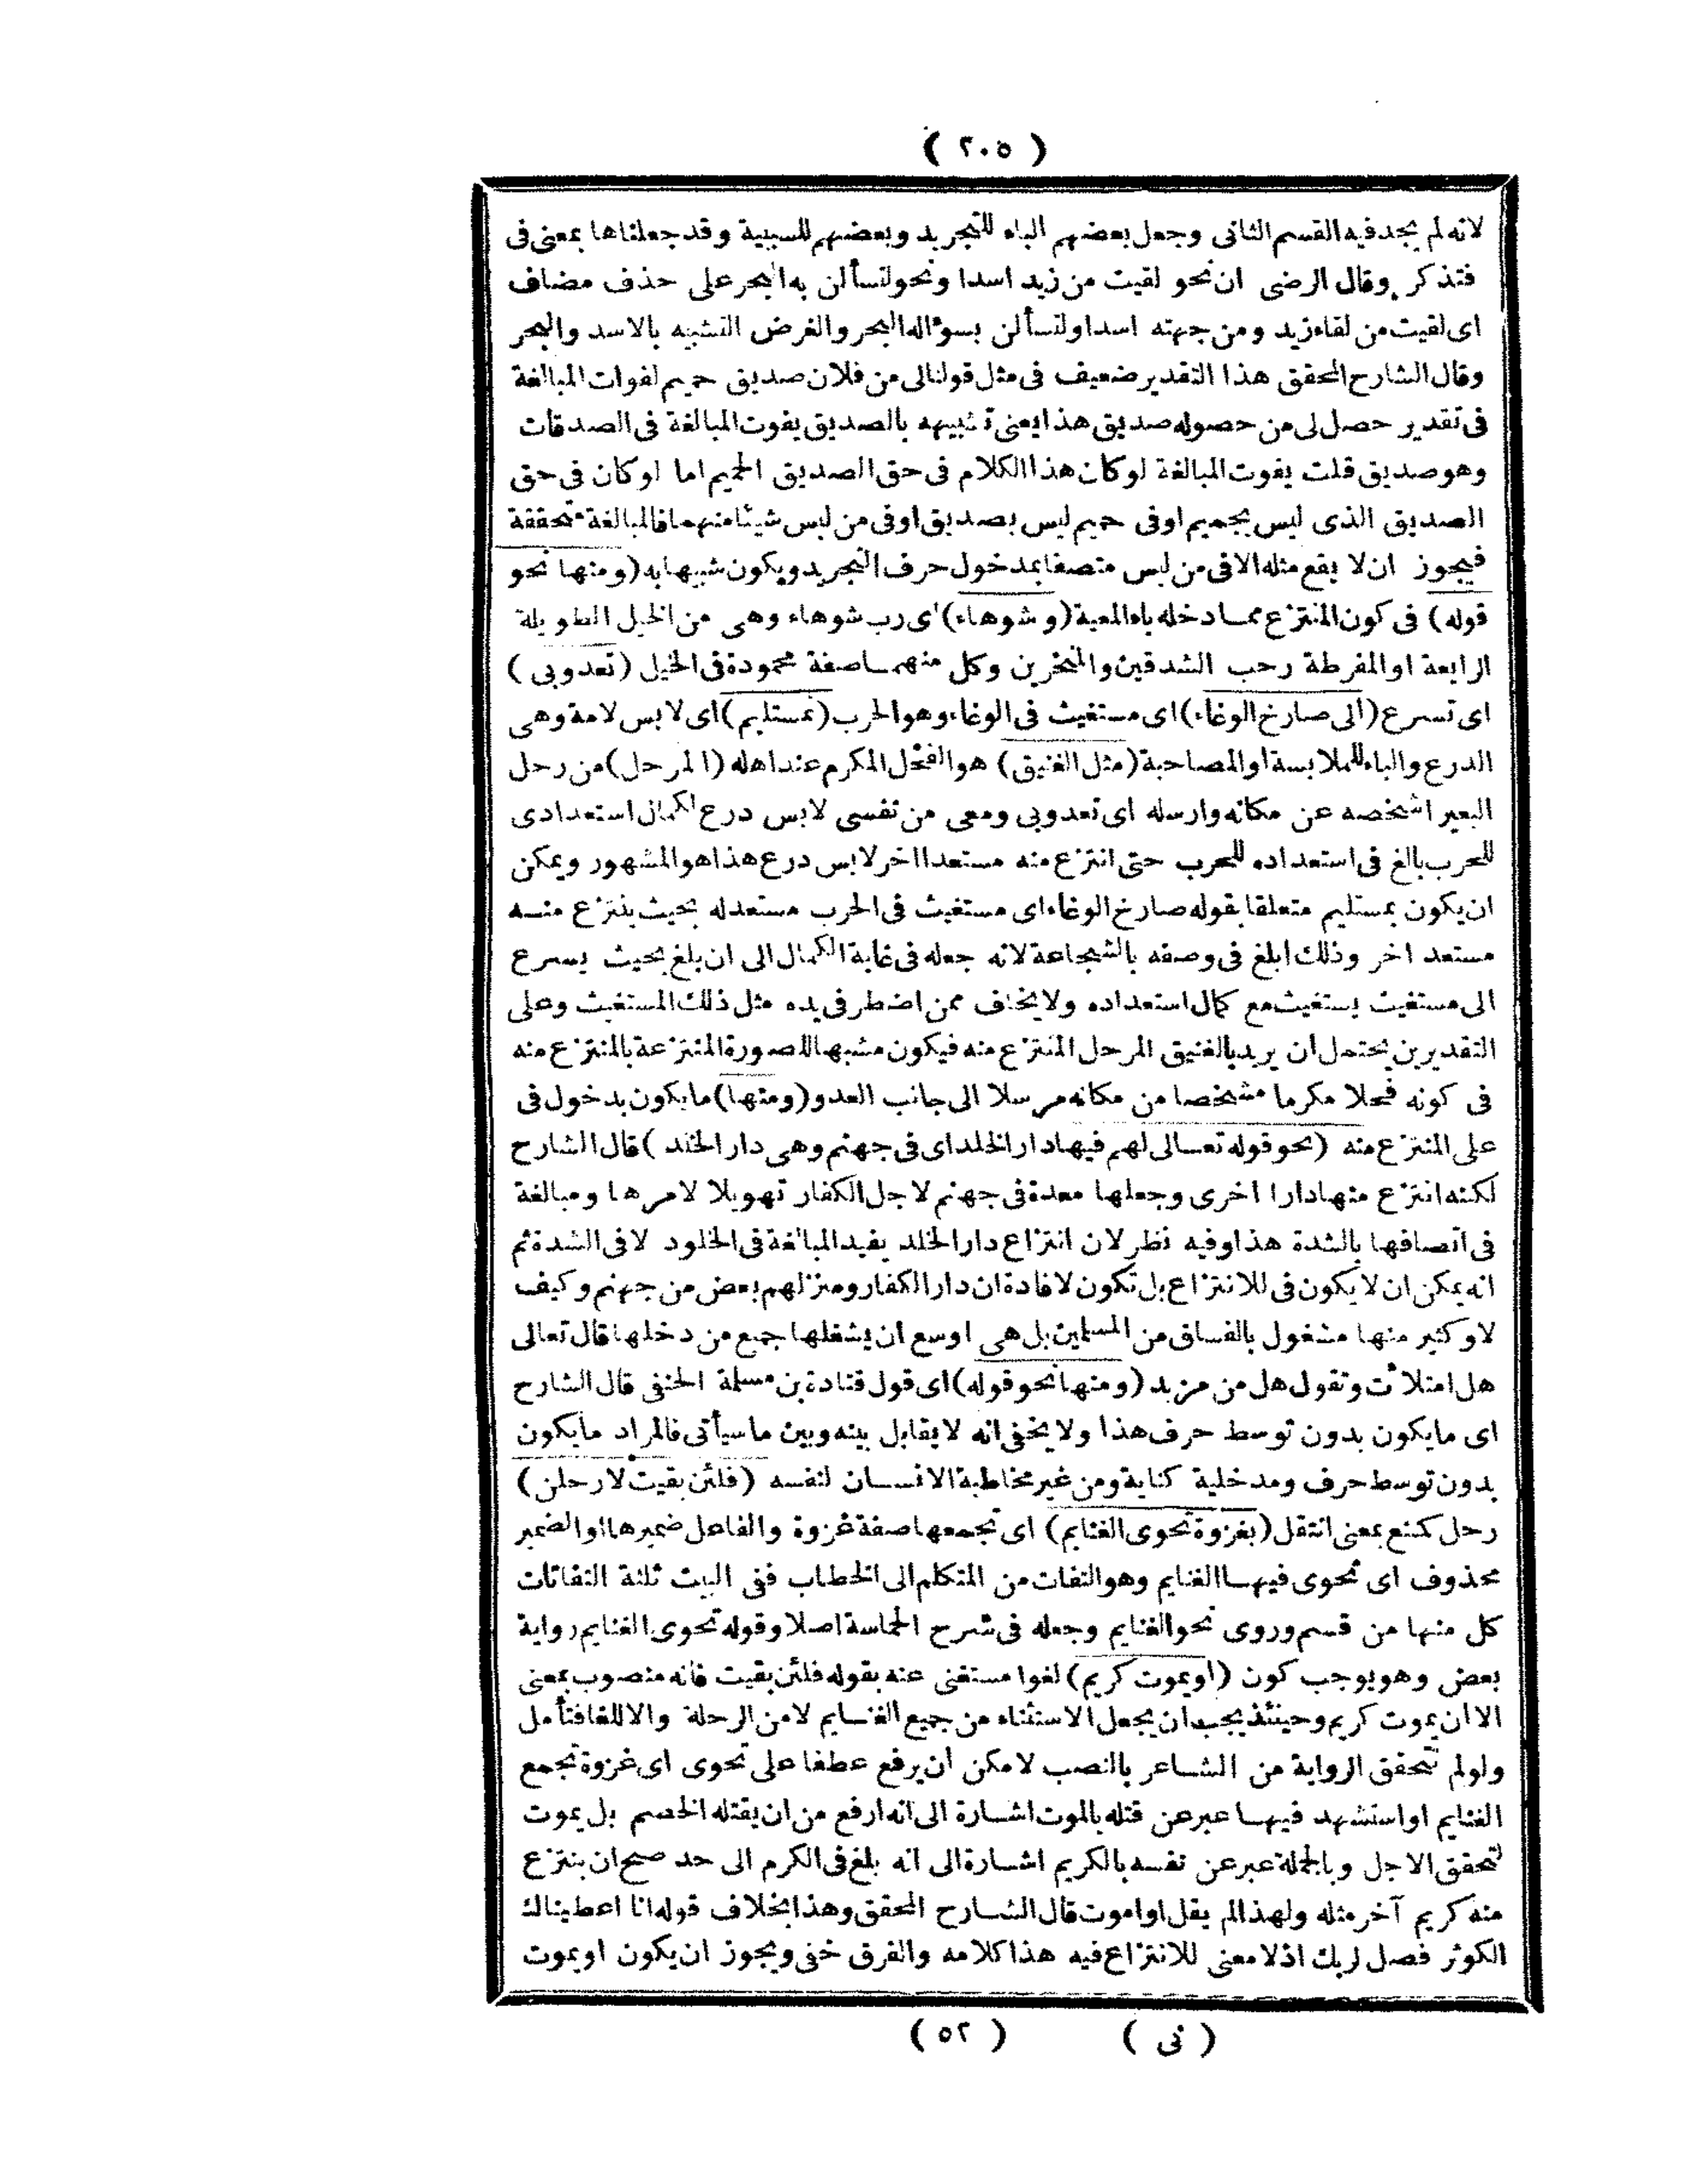 ( ٢٠٥ )
لانه لم يجد فيه القسم الثانى وجعل بعضهم الباء للتجريد وبعضهم للسببية وقد جعلناها بمعنى فى
فتذكر وقال الرضى ان نحو لقيت من زيد اسدا ونحو لتسألن به البحر على حذف مضاف
اى لقيت من لقاء زيد ومن جهته اسدا ولتسألن بسؤاله البحر والغرض التشبيه بالاسد والبحر
وقال الشارح المحقق هذا التقدير ضعيف فى مثل قولنا لى من فلان صديق حميم لفوات المبالغة
فى تقدير حصل لى من حصوله صديق هذا يعنى تشبيهه بالصديق يفوت المبالغة فى الصدقات
وهو صديق قلت يفوت المبالغة لو كان هذا الكلام فى حق الصديق الحميم اما لو كان فى حق
الصديق الذى ليس بحميم او فى حميم ليس بصديق او فى من ليس شيئا منهما فالمبالغة متحققة
فيجوز ان لا يقع مثله الا فى من ليس متصفا بمدخول حرف التجريد ويكون شبيها به (ومنها نحو
قوله) فى كون المنتزع مما دخله باء المعية (وشوهاء) اى رب شوهاء وهى من الخيل الطويلة
الرابعة او المفرطة رحب الشدقين والمنخرين وكل منهما صفة محمودة فى الخيل (تعدوبى)
اى تسرع (الى صارخ الوغاء) اى مستغيث فى الوغاء وهو الحرب (بمستليم) اى لابس لامة وهى
الدرع والباء للملابسة او المصاحبة (مثل الفنيق) هو الفحل المكرم عند اهله (المرحل) من رحل
البعير اشخصه عن مكانه وارسله اى تعدوبى ومعى من نفسى لابس درع لكمال استعدادى
للحرب بالغ فى استعداده للحرب حتى انتزع منه مستعدا اخر لابس درع هذا هو المشهور ويمكن
ان يكون بمستليم متعلقا بقوله صارخ الوغاء اى مستغيث فى الحرب مستعد له بحيث ينتزع منه
مستعد اخر وذلك ابلغ فى وصفه بالشجاعة لانه جعله فى غاية الكمال الى ان بلغ بحيث يسرع
الى مستغيث يستغيث مع كمال استعداده ولا يخاف ممن اضطر فى يده مثل ذلك المستغيث وعلى
التقديرين يحتمل ان يريد بالفنيق المرحل المنتزع منه فيكون مشبها للصورة المنتزعة بالمنتزع منه
فى كونه فحلا مكرما مشخصا من مكانه مرسلا الى جانب العدو (ومنها) ما يكون بدخول فى
على المنتزع منه (نحو قوله تعالى لهم فيها دار الخلد اى فى جهنم وهى دار الخلد) قال الشارح
لكنه انتزع منها دارا اخرى وجعلها معدة فى جهنم لاجل الكفار تهويلا لامرها ومبالغة
فى اتصافها بالشدة هذا وفيه نظر لان انتزاع دار الخلد يفيد المبالغة فى الخلود لا فى الشدة ثم
انه يمكن ان لا يكون فى للانتزاع بل تكون لافادة ان دار الكفار ومنزلهم بعض من جهنم وكيف
لا وكثير منها مشغول بالفساق من المسلمين بل هى اوسع ان يشغلها جميع من دخلها قال تعالى
هل امتلأت وتقول هل من مزيد (ومنها نحو قوله) اى قول قتادة بن مسلمة الحنفى قال الشارح
اى ما يكون بدون توسط حرف هذا ولا يخفى انه لا يقابل بينه وبين ما سيأتى فالمراد ما يكون
بدون توسط حرف ومدخلية كناية ومن غير مخاطبة الانسان لنفسه (فلئن بقيت لارحلن)
رحل كمنع بمعنى انتقل (بغزوة تحوى الغنايم) اى تجمعها صفة غزوة والفاعل ضميرها او الضمير
محذوف اى تحوى فيها الغنايم وهو التفات من المتكلم الى الخطاب ففى البيت ثلثة التفاتات
كل منها من قسم وروى نحو الغنايم وجعله فى شرح الحماسة اصلا وقوله تحوى الغنايم رواية
بعض وهو يوجب كون (او يموت كريم) لغوا مستغنى عنه بقوله فلئن بقيت فانه منصوب بمعنى
الا ان يموت كريم وحينئذ يجب ان يجعل الاستثناء من جميع الغنايم لا من الرحلة والا للغا فتأمل
ولو لم تتحقق الرواية من الشاعر بالنصب لامكن ان يرفع عطفا على تحوى اى غزوة تجمع
الغنايم او استشهد فيها عبر عن قتله بالموت اشارة الى انه ارفع من ان يقتله الخصم بل يموت
لتحقق الاجل وبالجملة عبر عن نفسه بالكريم اشارة الى انه بلغ فى الكرم الى حد صح ان ينتزع
منه كريم آخر مثله ولهذا لم يقل او اموت قال الشارح المحقق وهذا بخلاف قوله انا اعطيناك
الكوثر فصل لربك اذ لا معنى للانتزاع فيه هذا كلامه والفرق خفى ويجوز ان يكون او يموت
( نى ) ( ٥٢ )